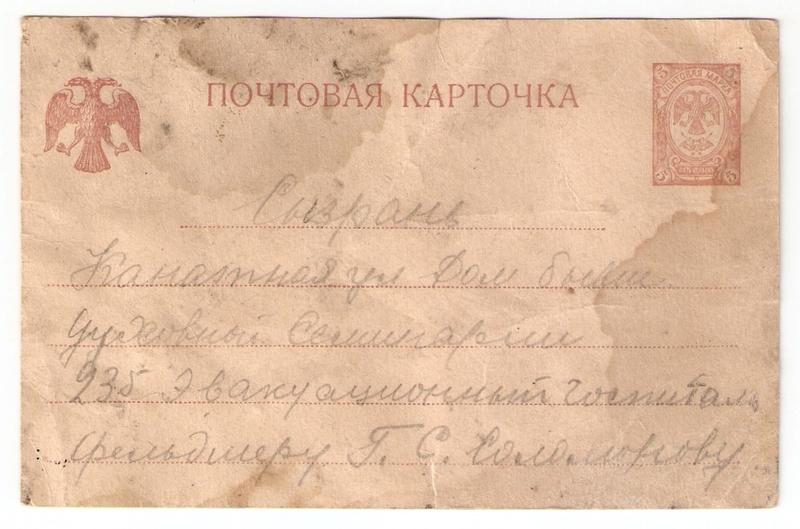 ПОЧТОВАЯ КАРТОЧКА
ПОЧТОВАЯ МАРКА
5 5
5 5
Сызрань
Канатная ул Дом бывш.
Духовный Семинарии
235 Эвакуационный госпиталь
фельдшеру Г. С. Соломонову